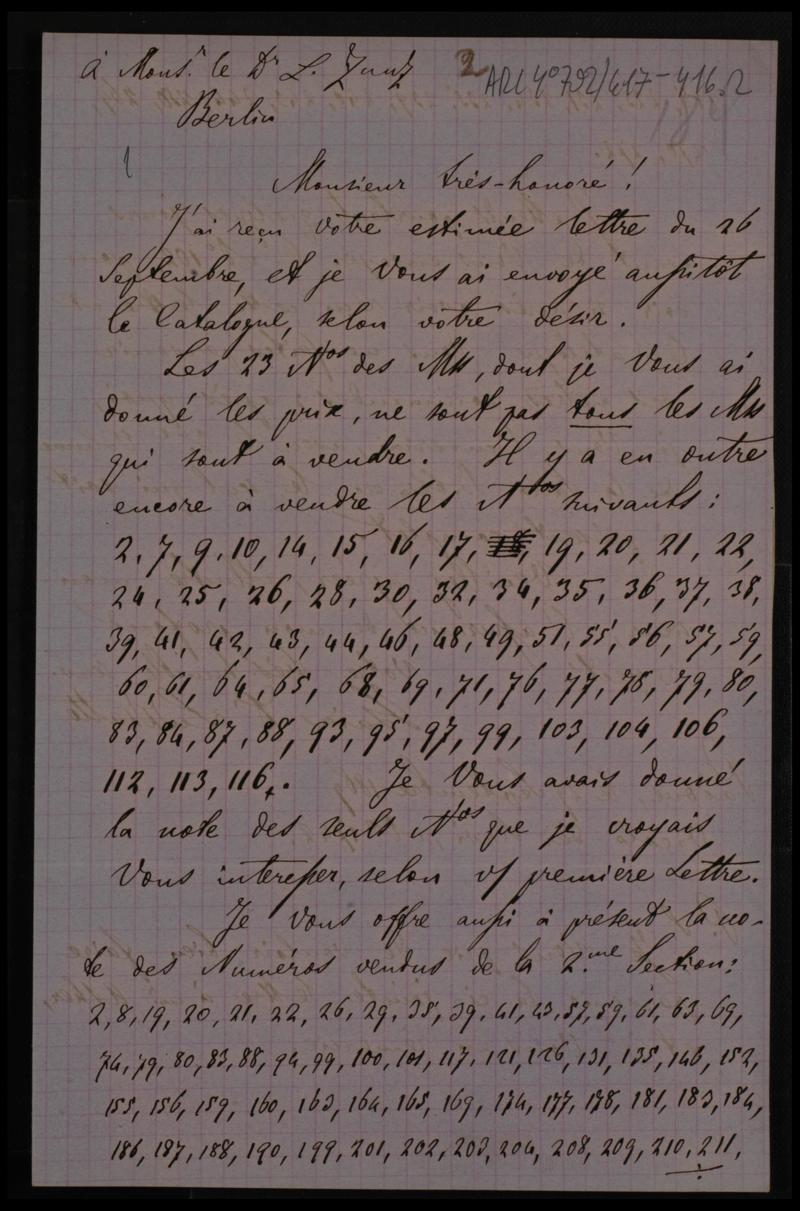 à Mons.r le Dr L. Zunz
2
ARC 4° 792/G17-416.2
Berlin
1
Monsieur très-honoré!
J'ai reçu votre estimée lettre du 26
Septembre, et je Vous ai envoyé aussitôt
le Catalogue, selon votre désir.
Les 23 Nos des Mss, dont je Vous ai
donné les prix, ne sont pas tous les Mss
qui sont à vendre. Il y a en outre
encore à vendre les Nos suivants:
2, 7, 9, 10, 14, 15, 16, 17, 18, 19, 20, 21, 22,
24, 25, 26, 28, 30, 32, 34, 35, 36, 37, 38,
39, 41, 42, 43, 44, 46, 48, 49, 51, 55, 56, 57, 59,
60, 61, 64, 65, 68, 69, 71, 76, 77, 78, 79, 80,
83, 84, 87, 88, 93, 95, 97, 99, 103, 104, 106,
112, 113, 116. Je Vous avais donné
la note des seuls Nos que je croyais
Vous interesser, selon v/ première Lettre.
Je Vous offre aussi à présent la no-
te des Numéros vendus de la 2.me Section:
2, 8, 19, 20, 21, 22, 26, 29, 35, 39, 41, 43, 57, 59, 61, 63, 69,
74, 79, 80, 83, 88, 94, 99, 100, 101, 117, 121, 126, 131, 135, 146, 152,
155, 156, 159, 160, 163, 164, 165, 169, 174, 177, 178, 181, 183, 184,
186, 187, 188, 190, 199, 201, 202, 203, 204, 208, 209, 210, 211,